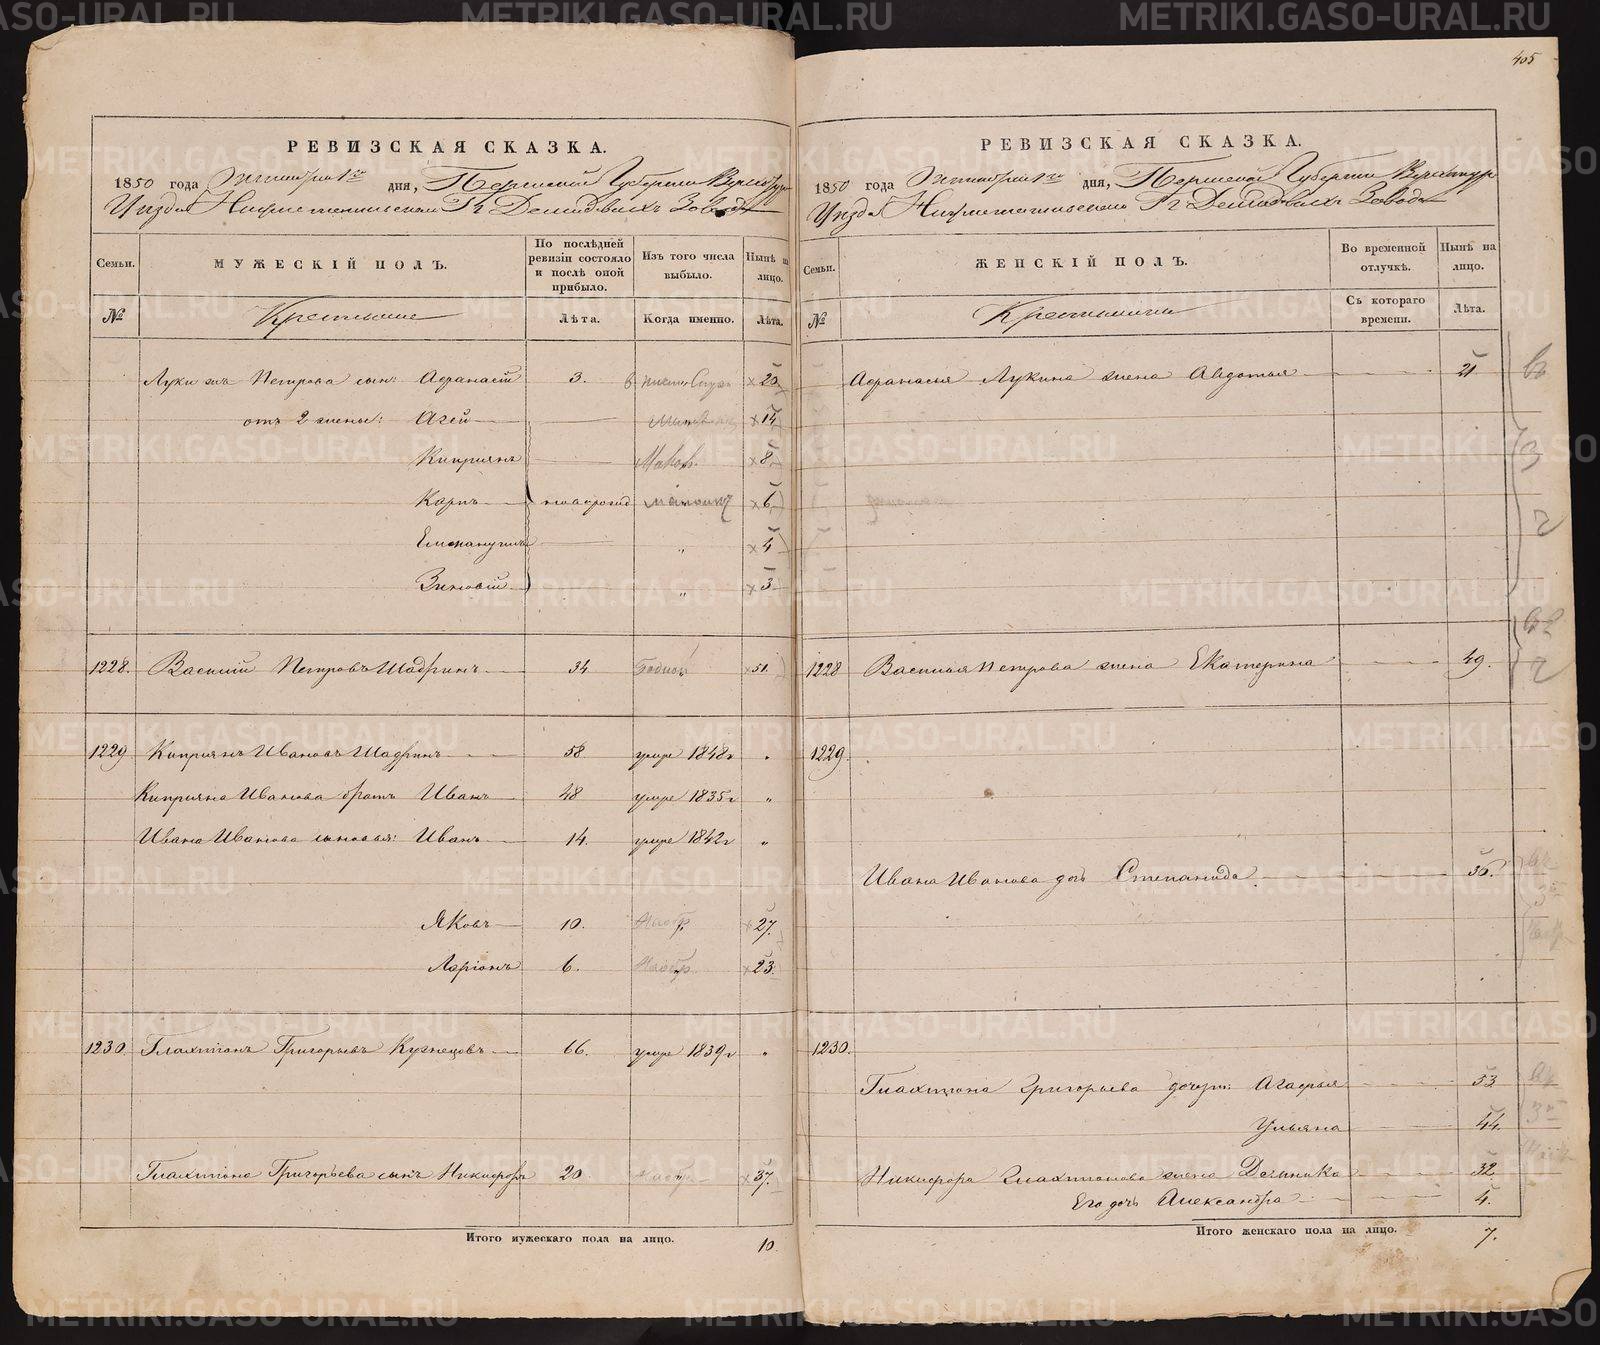 405
РЕВИЗСКАЯ СКАЗКА.
1850 года Октября 1го дня, Пермской Губернии Верхотур
Уезда Нижнетагильскаго Гг. Демидовыхъ Завода
Семьи. МУЖЕСКІЙ ПОЛЪ. По послѣдней ревизіи состояло и послѣ оной прибыло. Изъ того числа выбыло. Нынѣ на лицо.
№ Крестьяне Лѣта. Когда именно. Лѣта.
Луки Петрова сын: Афанасій 3. 20
отъ 2 жены: Агей 14
Кипріянъ 8
Карпъ новорожд 6
Еммануилъ " 4
Зиновій " 3
1228. Василій Петровъ Шадринъ 34 51.
1229 Кипріянъ Ивановъ Шадринъ 58 умре 1848г "
Кипріяна Иванова братъ Иванъ 48 умре 1835г "
Ивана Иванова сыновья: Иванъ 14. умре 1842г "
Яковъ 10. 27.
Ларіонъ 6. 23.
1230. Галахтіонъ Григорьевъ Кузнецовъ 66. умре 1839г "
Галахтіона Григорьева сынъ Никифоръ 20. 37.
Итого мужескаго пола на лицо. 10.
РЕВИЗСКАЯ СКАЗКА.
1850 года Октября 1го дня, Пермской Губерніи Верхотур
Уезда Нижнетагильскаго Гг. Демидовыхъ Завода
Семьи. ЖЕНСКІЙ ПОЛЪ. Во временной отлучкѣ. Нынѣ на лицо.
№ Крестьянки Съ котораго времени. Лѣта.
Афанасья Лукина жена Авдотья 21
1228 Василья Петрова жена Екатерина 49.
1229.
Ивана Иванова дочь Степанида 36.
1230.
Галахтіона Григорьева дочери: Агафья 53
Ульяна 44.
Никифора Галахтіонова жена Домника 32
Его дочь Александра 4.
Итого женскаго пола на лицо. 7.
METRIKI.GASO-URAL.RU